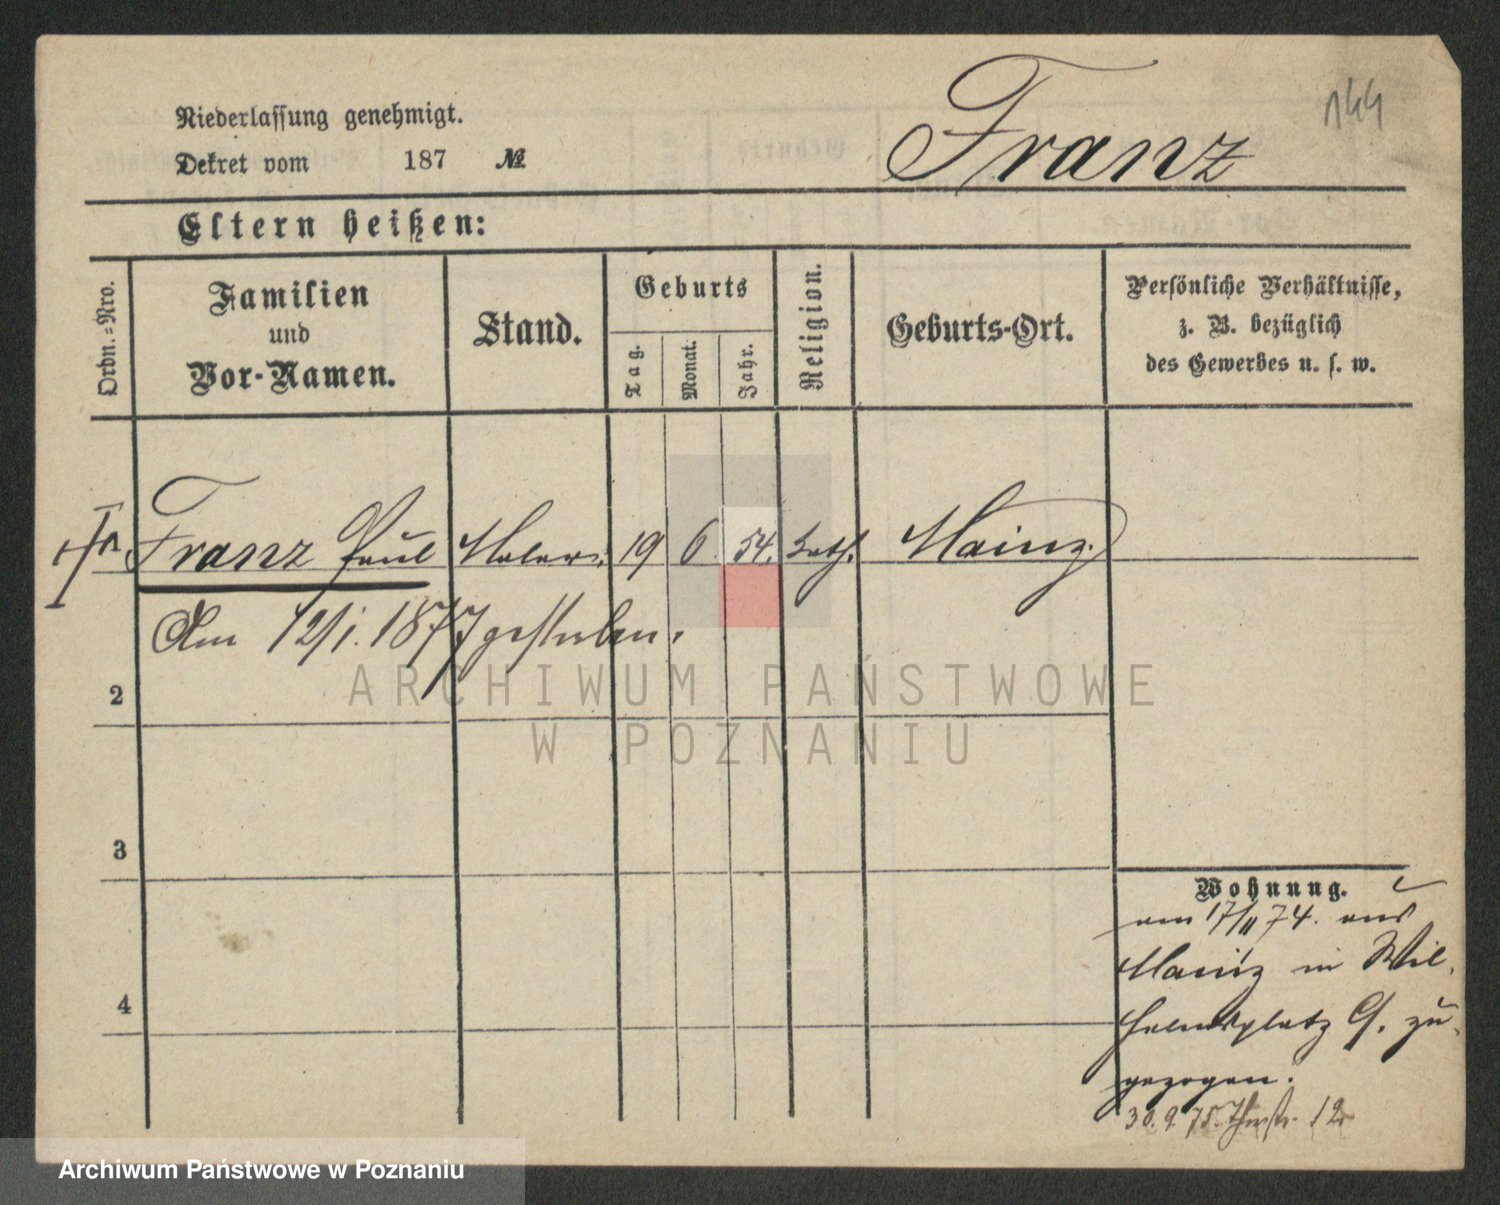 144
Niederlassung genehmigt.
Dekret vom 187 №
Franz
Eltern heißen:
Ordn.=Nro.
Familien
und
Vor-Namen.
Stand.
Geburts
Tag.
Monat.
Jahr.
Religion.
Geburts-Ort.
Persönliche Verhältnisse,
z. B. bezüglich
des Gewerbes u. s. w.
Franz Paul Maler. 19 6. 54. kath. Mainz.
Am 12/1. 1877 gestorben.
2
3
4
Wohnung.
am 17/11 74. aus
Mainz in Wil-
helmsplatz 9. zu-
gezogen.
30. 9. 75. 12
ARCHIWUM PAŃSTWOWE
W POZNANIU
Archiwum Państwowe w Poznaniu